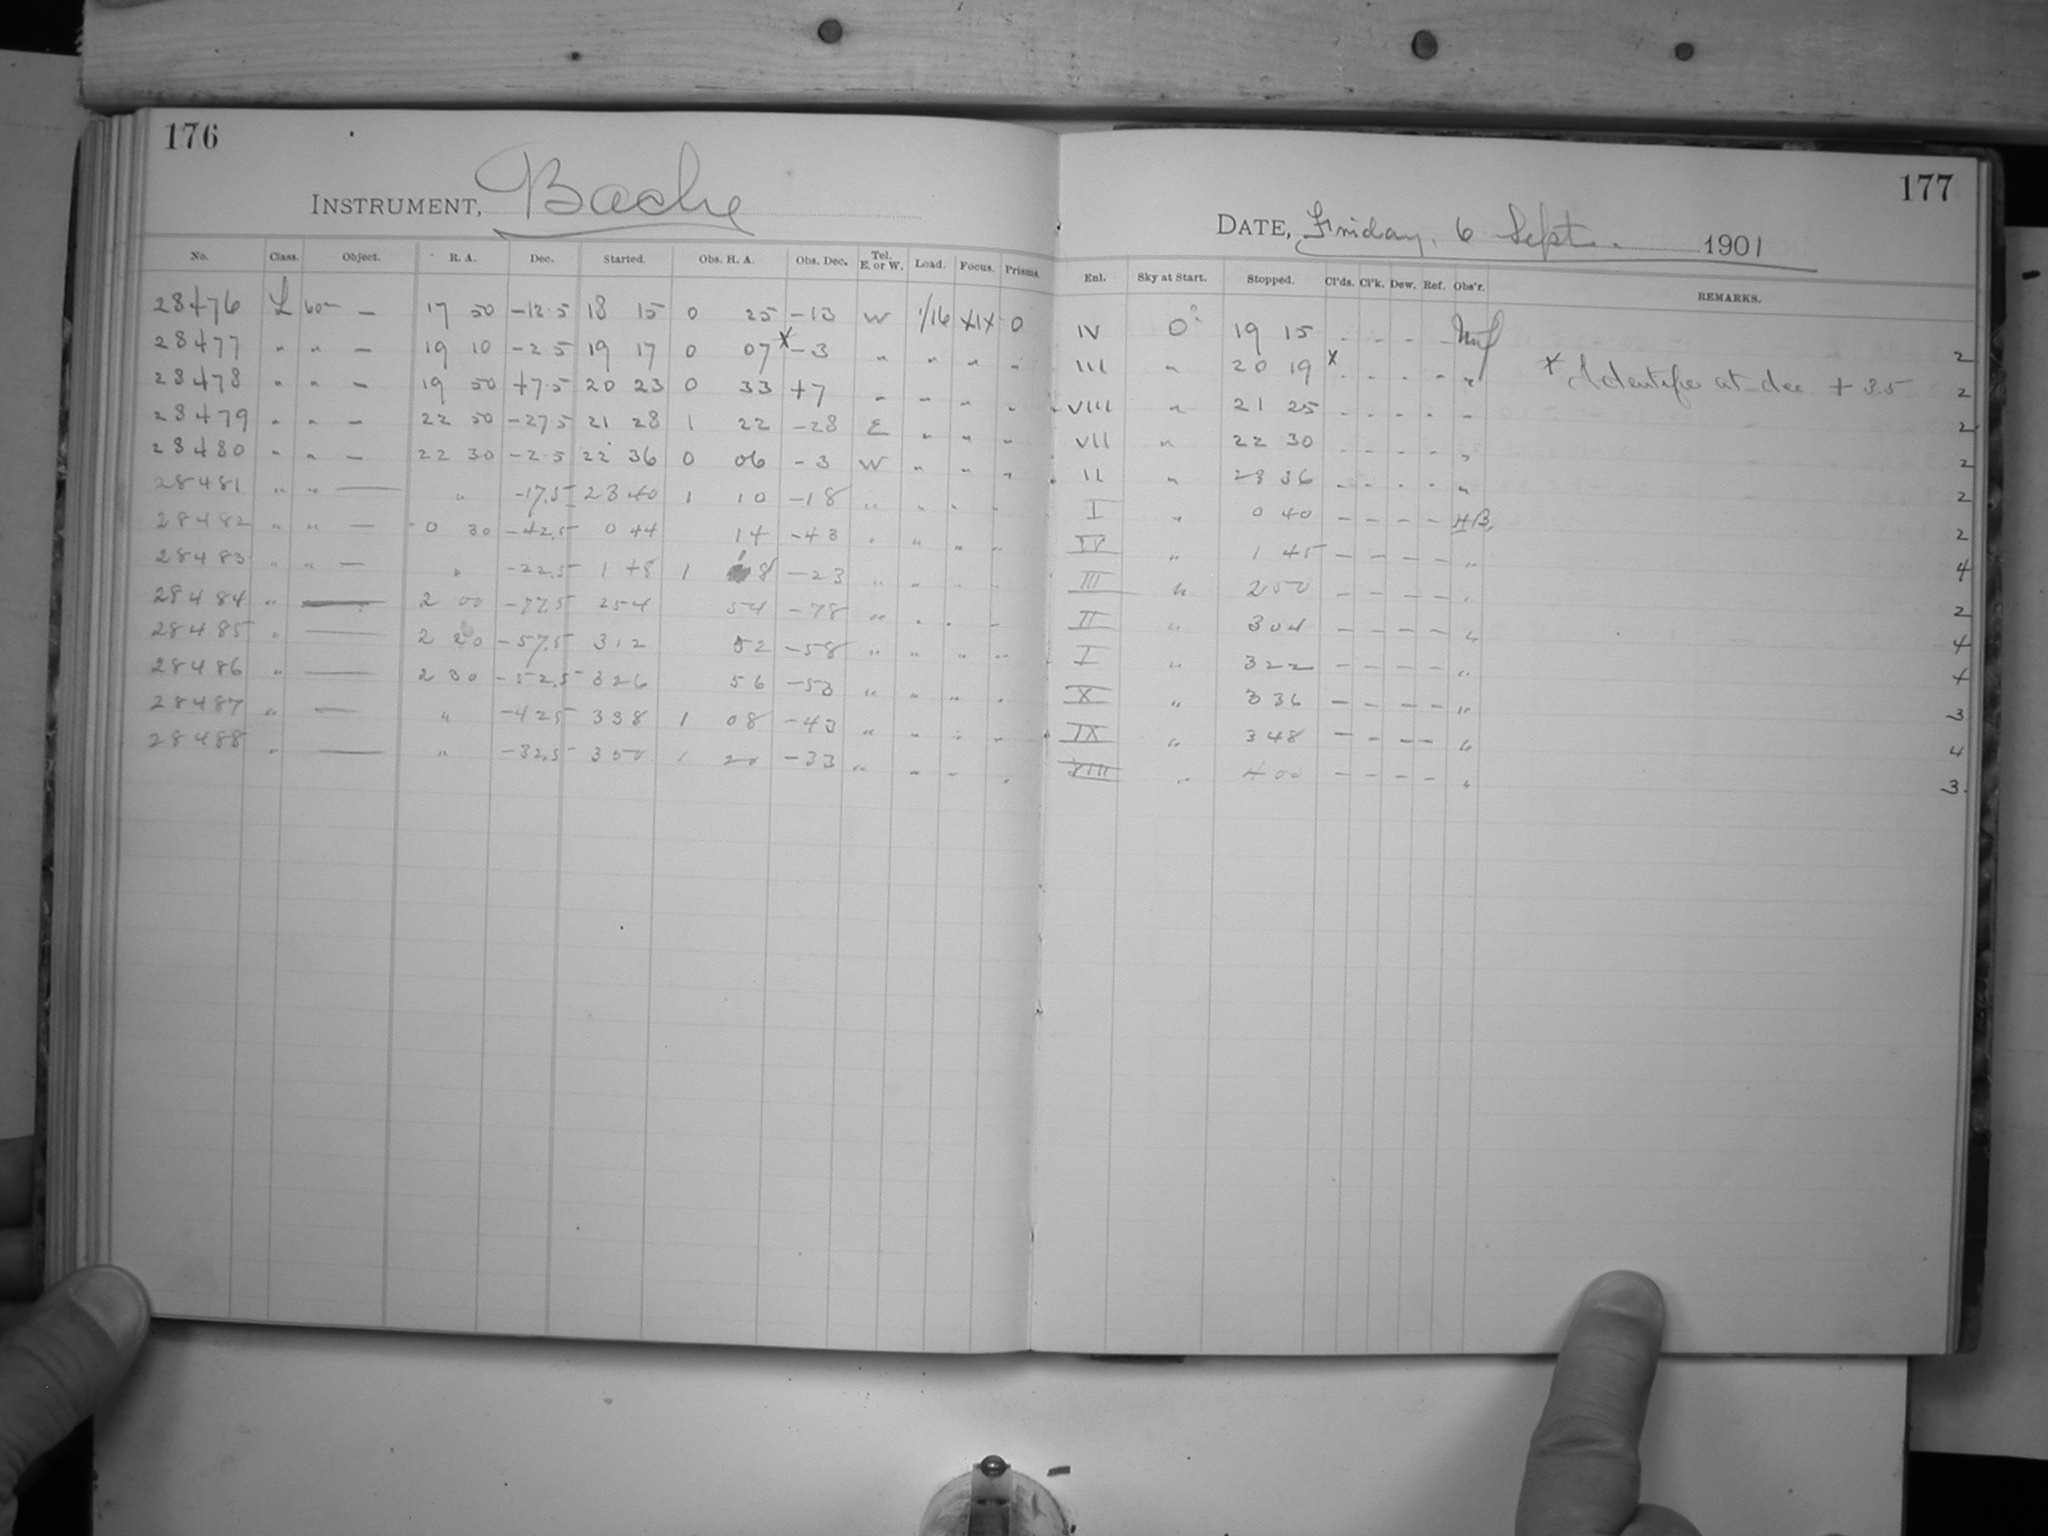 176
INSTRUMENT, Bache
No. Class. Object. R. A. Dec. Started. Obs. H. A. Obs. Dec. Tel. E. or W. Load. Focus. Prisms.
28476 L 60m — 17 50 -12.5 18 15 0 25 -13 W 1/16 XIX 0
28477 " " — 19 10 -2.5 19 17 0 07 x -3 " " " "
28478 " " — 19 50 +7.5 20 23 0 33 +7 " " " "
28479 " " — 22 50 -27.5 21 28 1 22 -28 E " " "
28480 " " — 22 30 -2.5 22 36 0 06 -3 W " " "
28481 " " — " -17.5 23 40 1 10 -18 " " " "
28482 " " — 0 30 -42.5 0 44 14 -43 " " " "
28483 " " — " -22.5 1 48 1 18 -23 " " " "
28484 " — 2 00 -77.5 2 54 54 -78 " " " "
28485 " — 2 20 -57.5 3 12 52 -58 " " " "
28486 " — 2 30 -52.5 3 26 56 -53 " " " "
28487 " — " -42.5 3 38 1 08 -43 " " " "
28488 " — " -32.5 3 50 1 20 -33 " " " "
177
DATE, Friday, 6 Sept. 1901
Enl. Sky at Start. Stopped. Cl'ds. Cl'k. Dew. Ref. Obs'r. REMARKS.
IV 0 19 15 - - - - 2
III " 20 19 x - - - - " x Identifies at dec + 3.5 2
VIII " 21 25 - - - - " 2
VII " 22 30 - - - - " 2
II " 23 36 - - - - " 2
I " 0 40 - - - - HB. 2
IV " 1 45 - - - - " 4
III " 2 50 - - - - " 2
II " 3 04 - - - - " 4
I " 3 22 - - - - " 4
X " 3 36 - - - - " 3
IX " 3 48 - - - - " 4
VIII " 4 00 - - - - " 3.